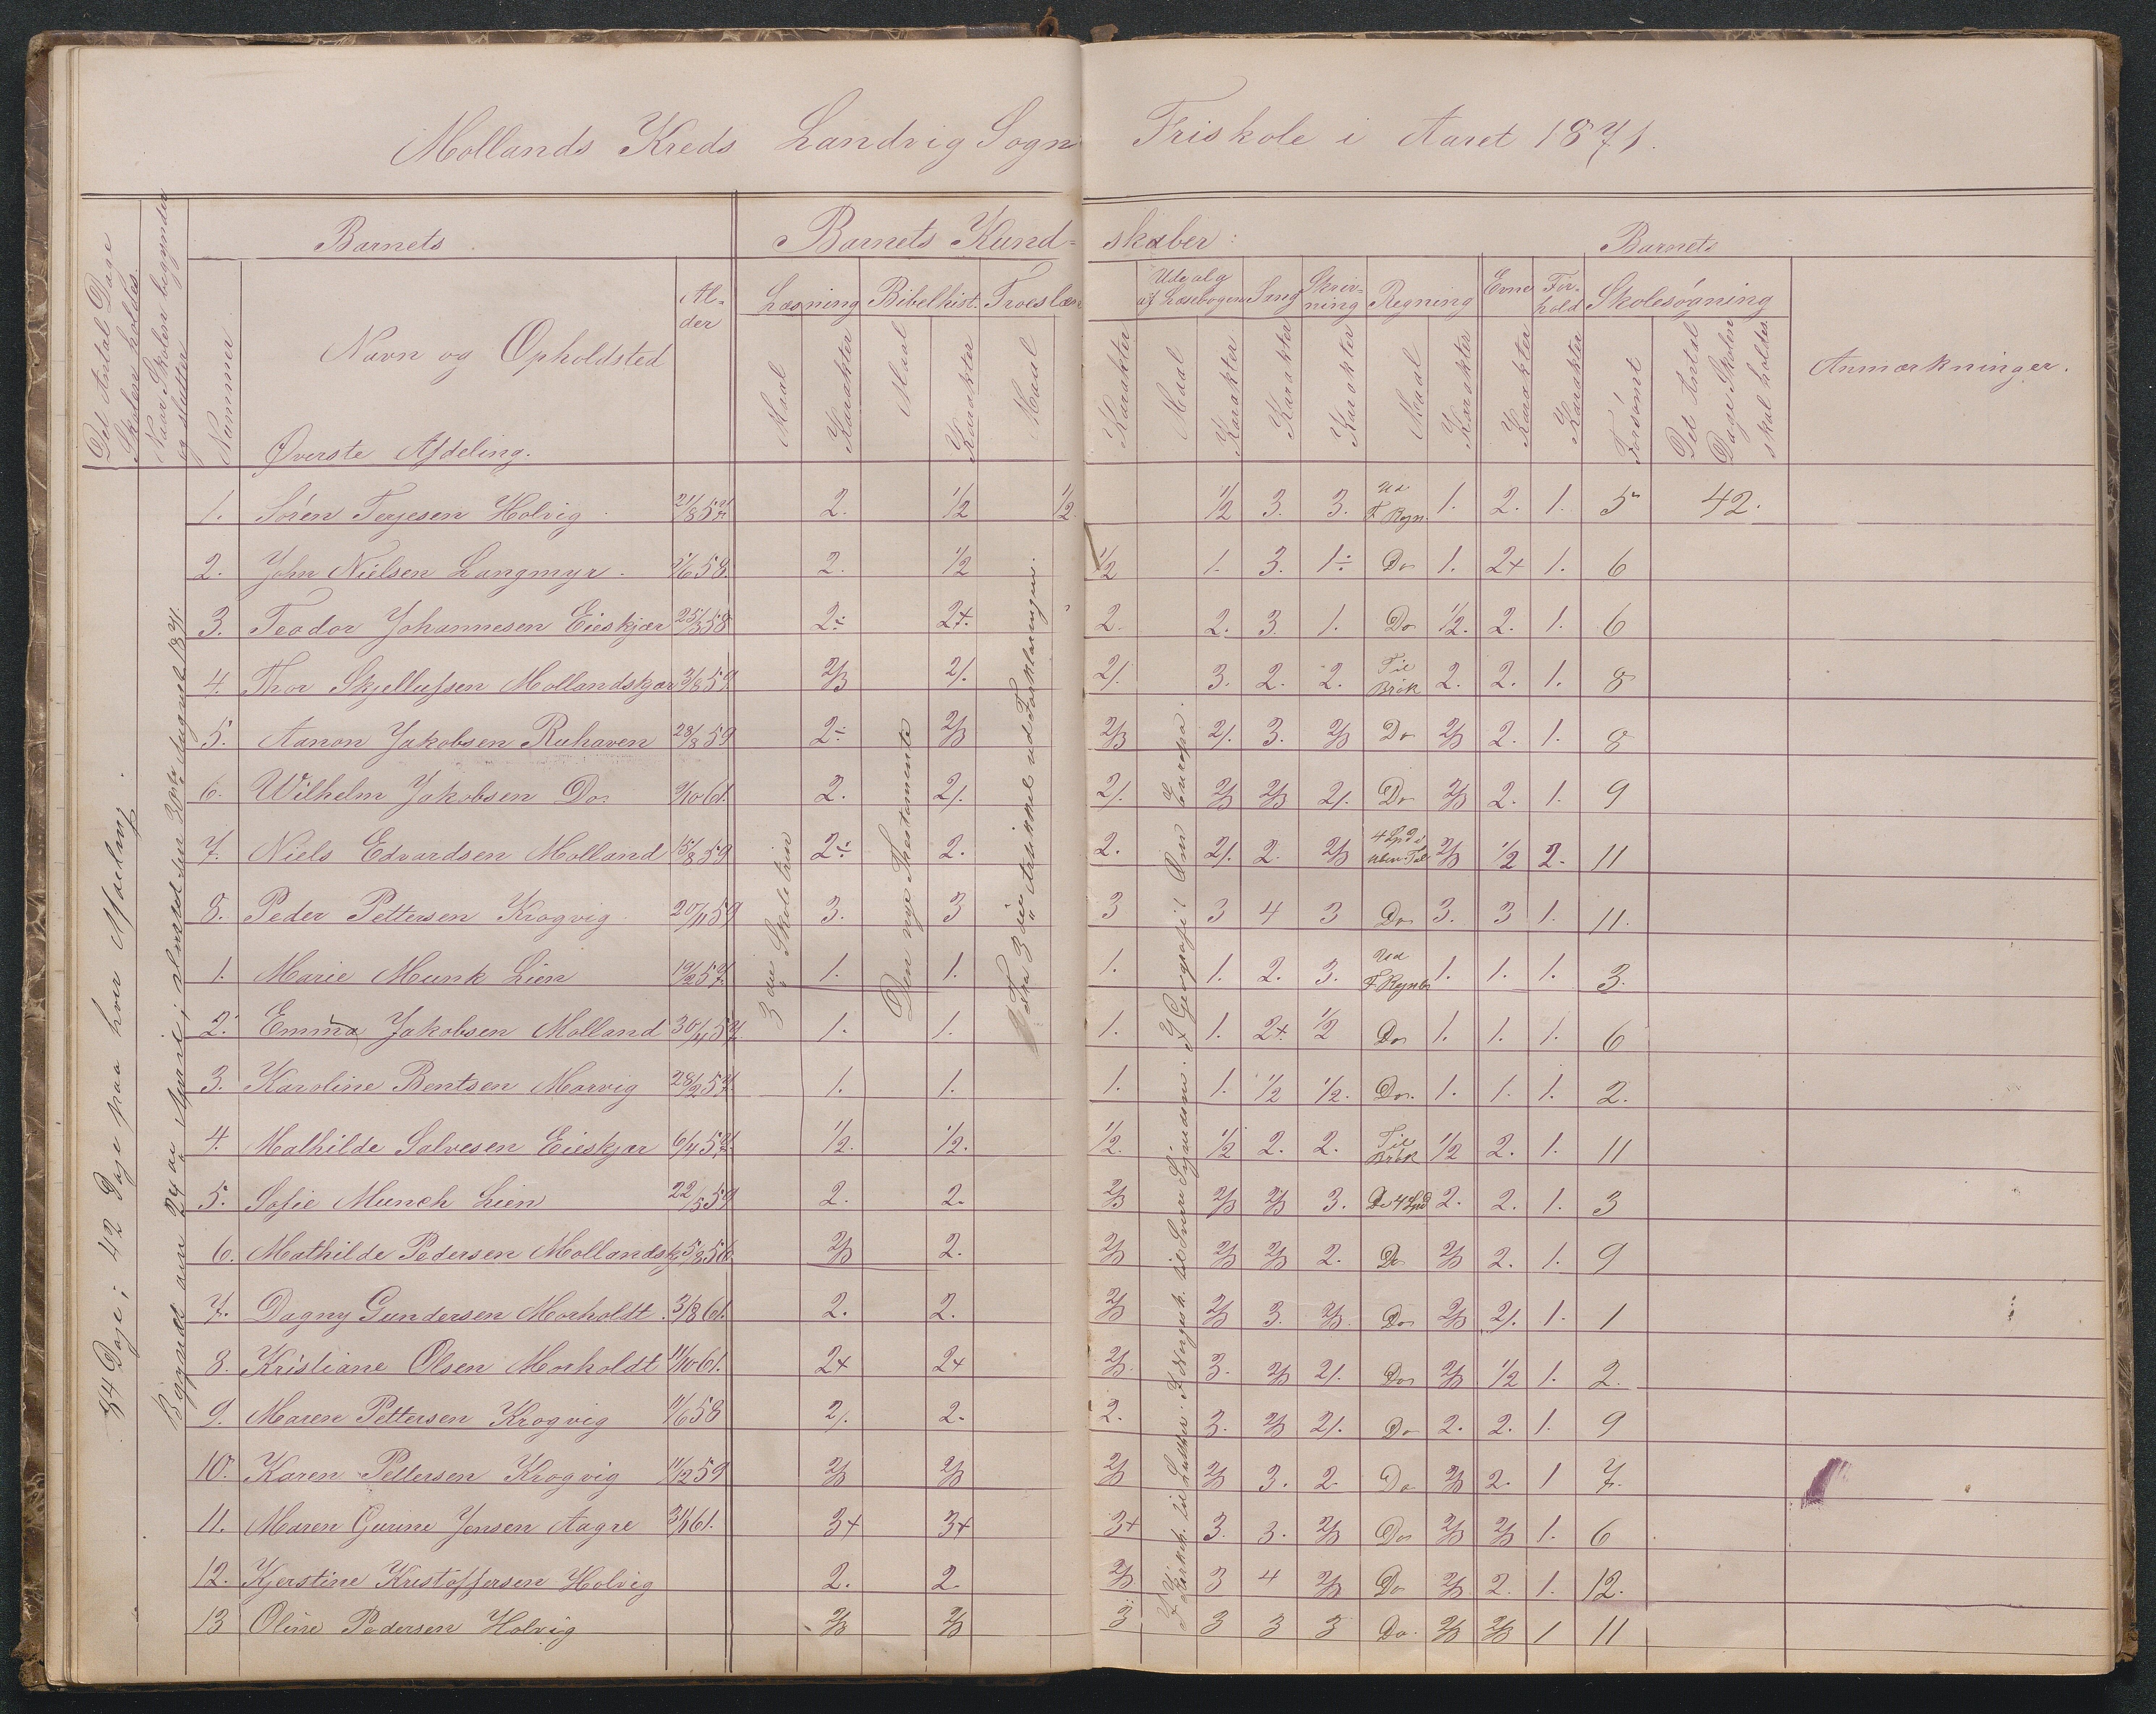 Mollands Kreds Landvig Sogn Friskole i Aaret 1871.
Det Antal Dage Skolen holdes.
Naar Skolen begynder og slutter
Nummer
Barnets
Navn og Opholdsted
Al-der
Øverste Afdeling.
Barnets Kund-skaber:
Læsning Bibelhist. Troeslære Udvalg af Læsebogen Sang Skriv-ning Regning Evner For-hold
Maal Karakter Maal Karakter Maal Karakter Maal Karakter Karakter Karakter Maal Karakter Karakter Karakter
Barnets
Skolesøgning
Forsømt
Det Antal Dage Skolen skal holdes.
Anmærkninger.
84 Dage i 42 Dage paa hver Afdeling.
3die Skoletrin
Det nye Thestamente
1. Søren Terjesen Holvig 21/8 57 2. 1/2 1/2. 1/2 3. 3. Ud F Regn. 1. 2. 1. 5 42.
2. John Nielsen Langmyr. 5/6 58. 2. 1/2 1/2 1. 3. 1÷ Do 1. 2+ 1. 6
3. Teodor Johannesen Eieskjær 25/5 58 2÷ 2+. 2. 2. 3. 1. Do 1/2. 2. 1. 6
4. Thor Skjellufsen Mollandskjær 3/8 59 2/3 2/. 2/. 3. 2. 2. Til Brøk 2. 2. 1. 8
5. Aanon Jakobsen Ruhaven 28/8 59 2÷ 2/3 2/3 2/. 3. 2/3 Do 2/3 2. 1. 8
6. Wilhelm Jakobsen Do. 9/10 61. 2. 2/. 2/. 2/3 2/3 2/. Do 2/3 2. 1. 9
7. Niels Edvardsen Molland 15/8 59 2÷ 2. 2. 2/. 2. 2/3 2/3 1/2 2. 11
8. Peder Pettersen Krogvig 20/11 59 3. 3 3 3 4 3 Do 3. 3 1. 11.
1. Marie Munk Lien 19/2 57 1. 1. 1. 1. 2. 3. Ud F Regnb 1. 1. 1. 3.
2. Emma Jakobsen Molland 30/4 57. 1. 1. 1. 1. 2+. 1/2 Do 1. 1. 1. 6
3. Karoline Bentsen Morvig 28/2 57 1. 1. 1. 1. 1/2 1/2. Do. 1. 1. 1. 2.
4. Mathilde Salvesen Eieskjær 6/4 57. 1/2. 1/2. 1/2. 1/2 2. 2. Til Brøk 1/2 2. 1. 11
5. Sofie Munch Lien 22/5 59 2. 2. 2/3 2/3 2/3 3. 2. 2. 1. 3
6. Mathilde Pedersen Mollandskj 5/8 56 2/3 2. 2/3 2/3 2/3 2. Do 2/3 2. 1. 9
7. Dagny Gundersen Morholdt. 3/8 61. 2. 2. 2/3 2/3 3. 2/3. Do 2/3 2/. 1. 1
8. Kristiane Olsen Morholdt 11/10 61. 2+ 2+ 2/3. 3. 2/3 2/. Do 2/3 1/2 1. 2.
9. Maren Pettersen Krogvig 11/6 58 2/. 2. 2. 3. 2/3 2/. Do 2. 2. 1. 9
10. Karen Pettersen Krogvig 11/2 59 2/3 2/3 2/3 2/3 3. 2 Do 2/3 2. 1 7.
11. Maren Gurine Jensen Aagre 3/1 61. 3+ 3+ 3+ 3. 3. 2/3 Do 2/3 2/3 1. 6
12. Kjerstine Kristoffersen Holvig 2. 2. 2/3 3 4 2/3 Do 2/3. 2. 1. 12.
13 Oline Pedersen Holvig 2/3 2/3 3 3 3 3 Do. 2/3 2/3 1 11